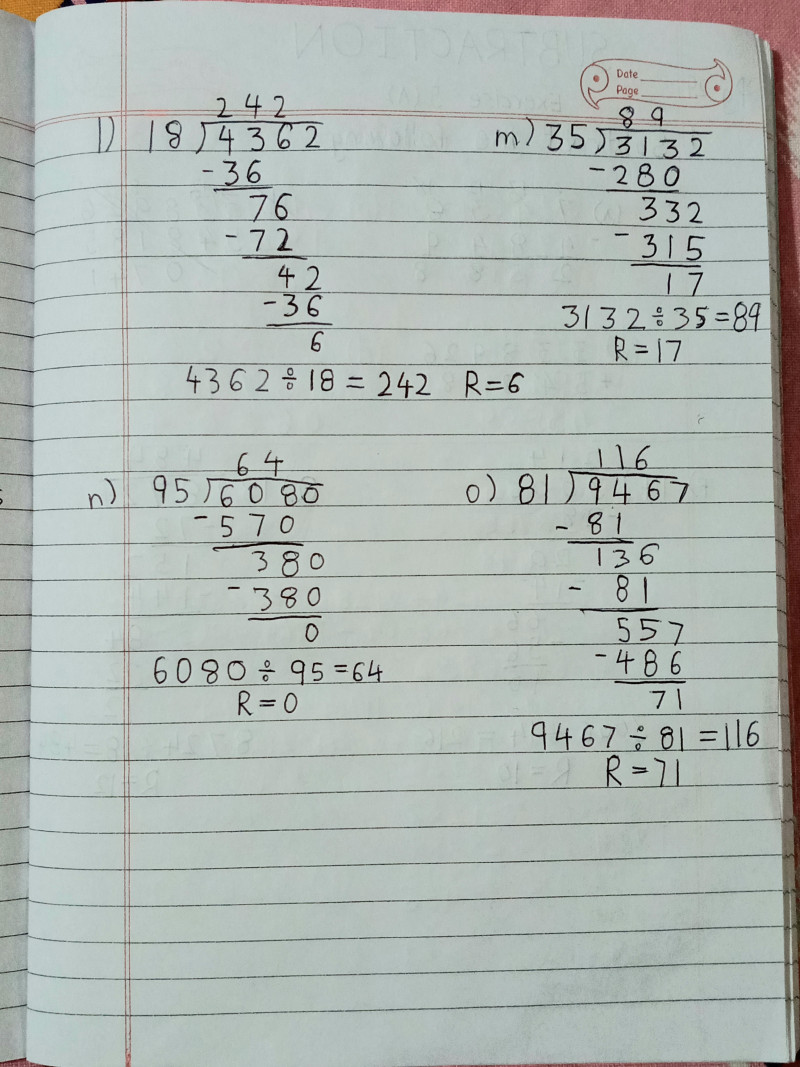 Date
Page
242
l) 18)4362
-36
76
-72
42
-36
6
4362÷18=242 R=6
89
m) 35)3132
-280
332
-315
17
3132÷35=89
R=17
64
n) 95)6080
-570
380
-380
0
6080÷95=64
R=0
116
o) 81)9467
-81
136
-81
557
-486
71
9467÷81=116
R=71